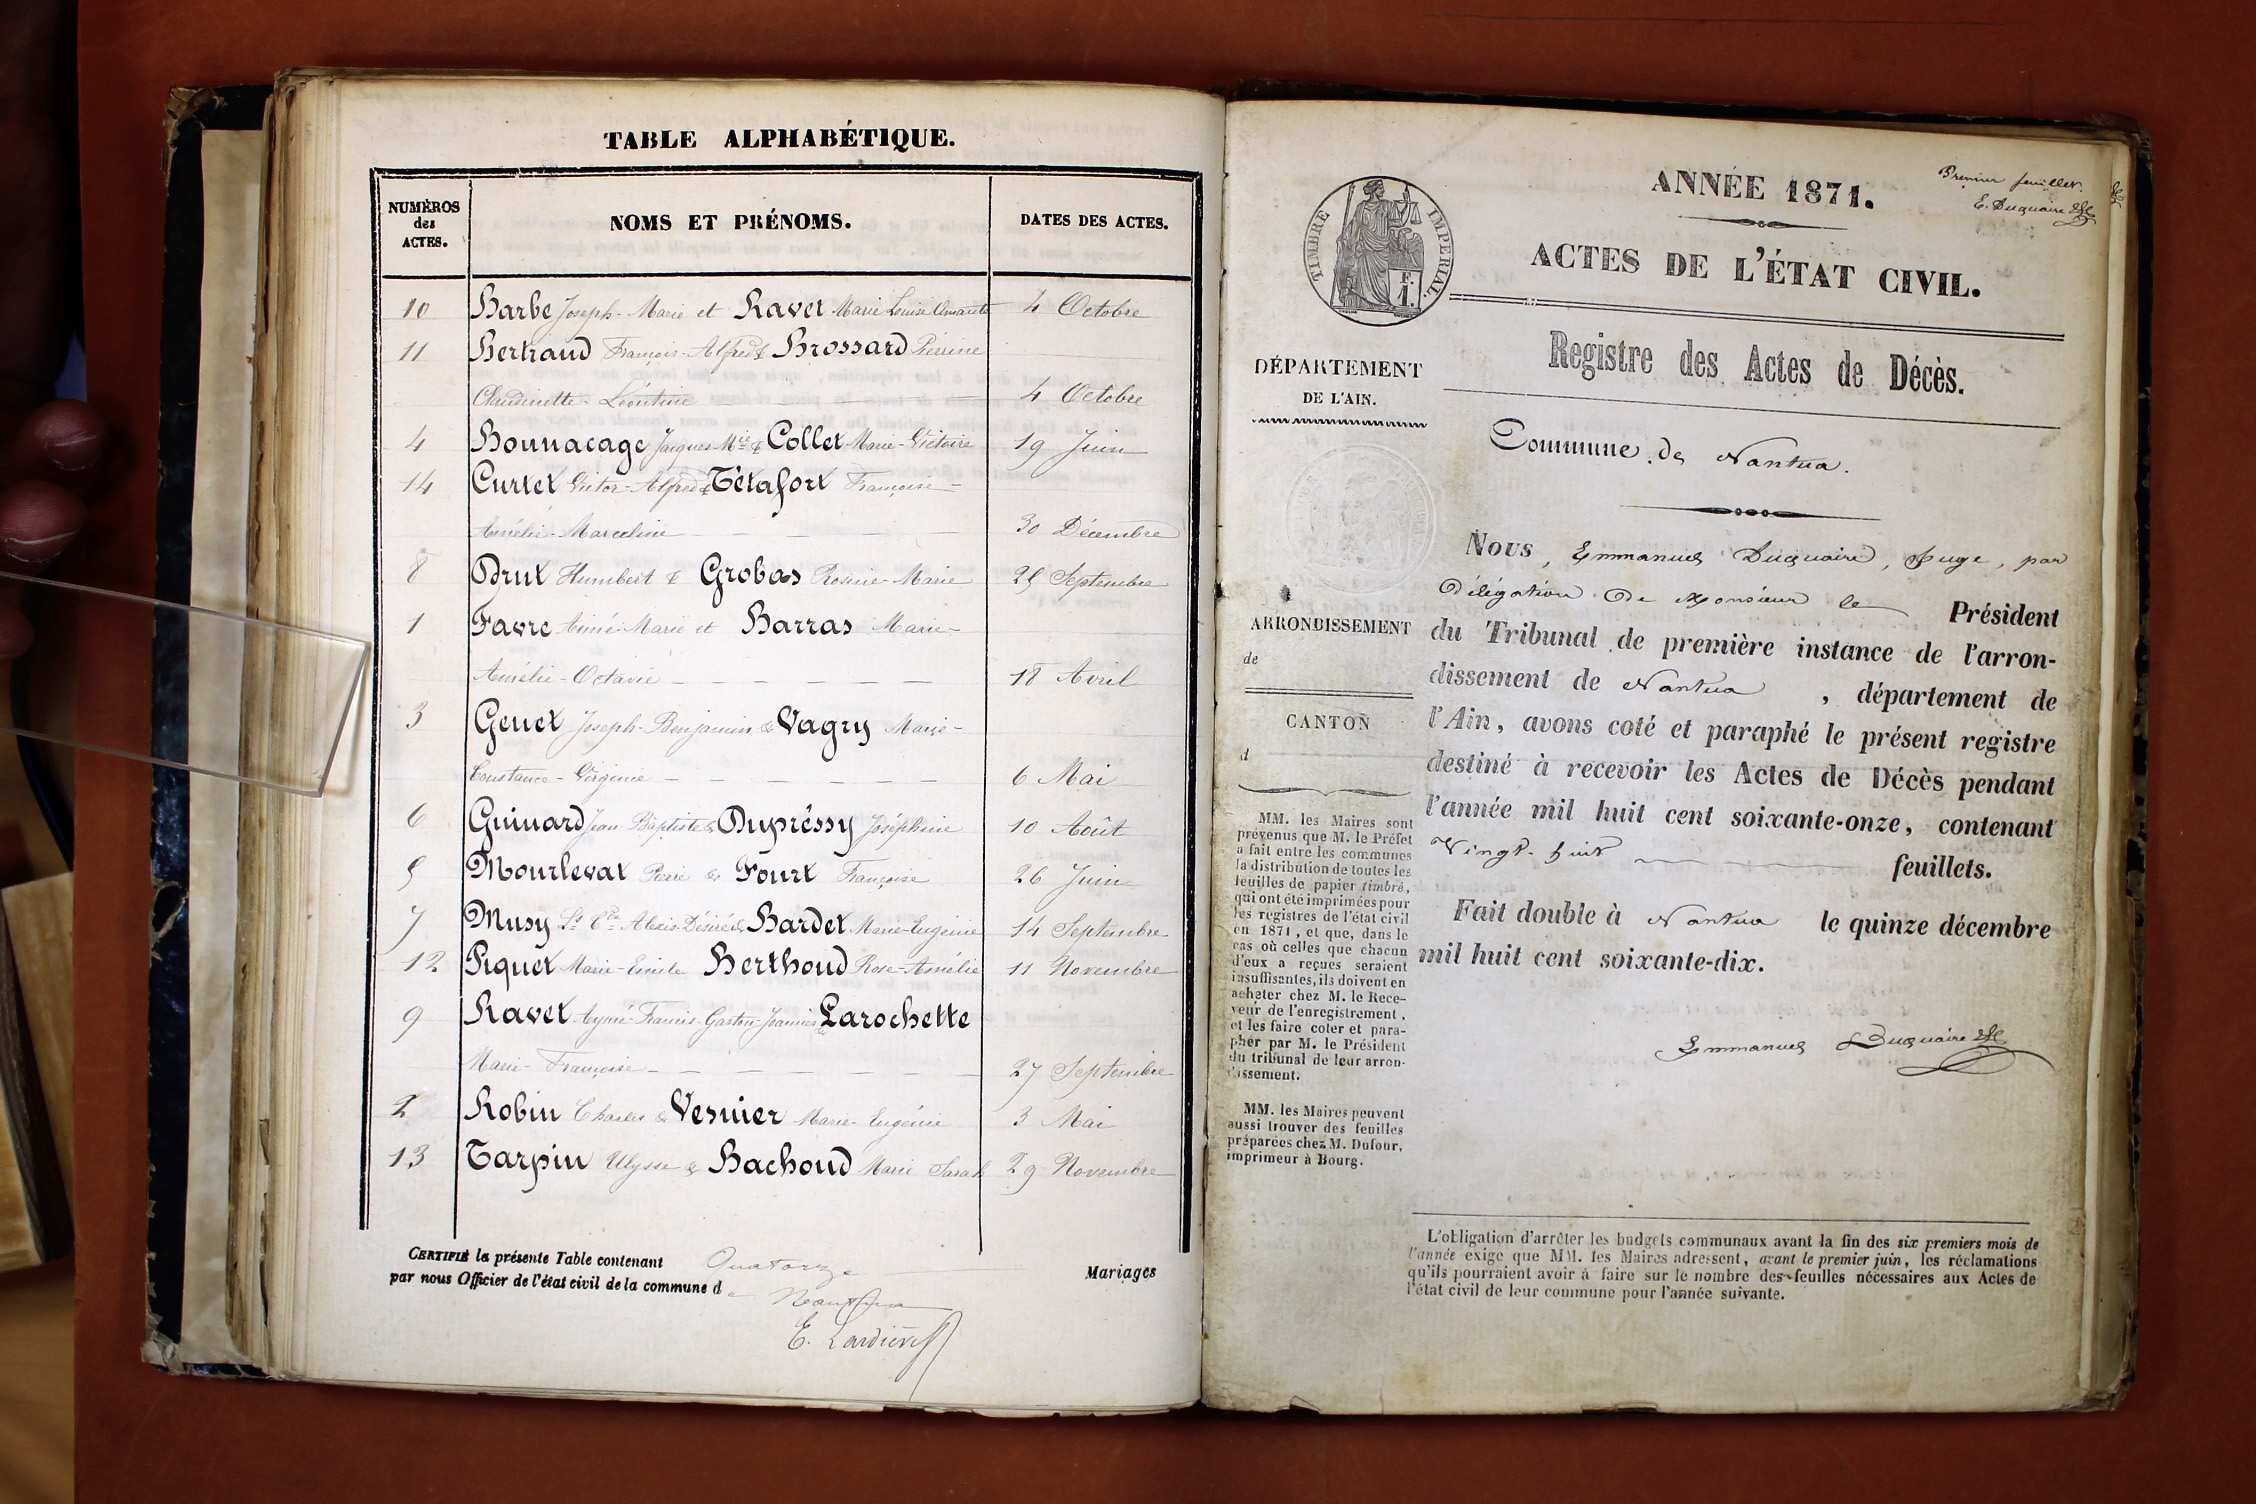 TABLE ALPHABÉTIQUE.
NUMÉROS des ACTES.
NOMS ET PRÉNOMS.
DATES DES ACTES.
10 Barbe Joseph-Marie et Ravet Marie Louise 4 Octobre
11 Bertrand François-Alfred & Brossard Pierrine
Claudinette-Léontine 4 Octobre
4 Bonnacage Jacques-Mie & Collet Marie-Victoire 19 Juin
14 Curtet Victor-Alfred & Tétafort Françoise-
Amélie-Marceline 30 Décembre
8 Drut Humbert & Grobas Rosine-Marie 25 Septembre
1 Favre Aimé-Marie et Barras Marie-
Amélie-Octavie 18 Avril
3 Genet Joseph-Benjamin & Vagry Marie-
Constance-Virginie 6 Mai
6 Guinard Jean-Baptiste & Dupréssy Joséphine 10 Août
5 Mourlevat Pierre & Fourt Françoise 26 Juin
7 Musy Alexis-Désiré & Bardet Marie-Eugénie 14 Septembre
12 Piquet Marie-Emile Berthoud Rose-Amélie 11 Novembre
9 Ravet Aymé-Francis-Gaston-Joannies & Larochette
Marie-Françoise 27 Septembre
2 Robin Charles & Vesnier Marie-Eugénie 3 Mai
13 Tarpin Ulysse & Bachoud Marie Sarah 29 Novembre
CERTIFIÉ la présente Table contenant Quatorze Mariages
par nous Officier de l'état civil de la commune de Nantua
E. Lardière
Premier feuillet.
E. Duquaire
ANNÉE 1871.
ACTES DE L'ÉTAT CIVIL.
TIMBRE IMPERIAL.
F. 1.
Registre des Actes de Décès.
DÉPARTEMENT
DE L'AIN.
Commune de Nantua.
ARRONDISSEMENT
de
CANTON
d
Nous, Emmanuel Duquaire, Juge, par
Délégation De Monsieur le Président
du Tribunal de première instance de l'arron-
dissement de Nantua, département de
l'Ain, avons coté et paraphé le présent registre
destiné à recevoir les Actes de Décès pendant
l'année mil huit cent soixante-onze, contenant
Vingt-huit feuillets.
Fait double à Nantua le quinze décembre
mil huit cent soixante-dix.
Emmanuel Duquaire
MM. les Maires sont
prévenus que M. le Préfet
a fait entre les communes
la distribution de toutes les
feuilles de papier timbré,
qui ont été imprimées pour
les registres de l'état civil
en 1871, et que, dans le
cas où celles que chacun
d'eux a reçues seraient
insuffisantes, ils doivent en
acheter chez M. le Rece-
veur de l'enregistrement,
et les faire coter et para-
pher par M. le Président
du tribunal de leur arron-
dissement.
MM. les Maires peuvent
aussi trouver des feuilles
préparées chez M. Dufour,
imprimeur à Bourg.
L'obligation d'arrêter les budgets communaux avant la fin des six premiers mois de
l'année exige que MM. les Maires adressent, avant le premier juin, les réclamations
qu'ils pourraient avoir à faire sur le nombre des feuilles nécessaires aux Actes de
l'état civil de leur commune pour l'année suivante.